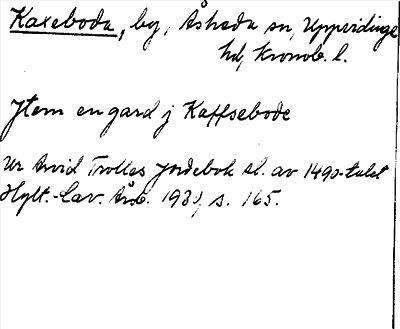 Kaxeboda, by, Åsheda sn, Uppvidinge
hd, Kronob. l.
Jtem en gard j Kaffsebode
Ur Arvid Trolles jordebok sl. av 1490-talet
Hylt.-Cav. Årsb. 1930, s. 165.